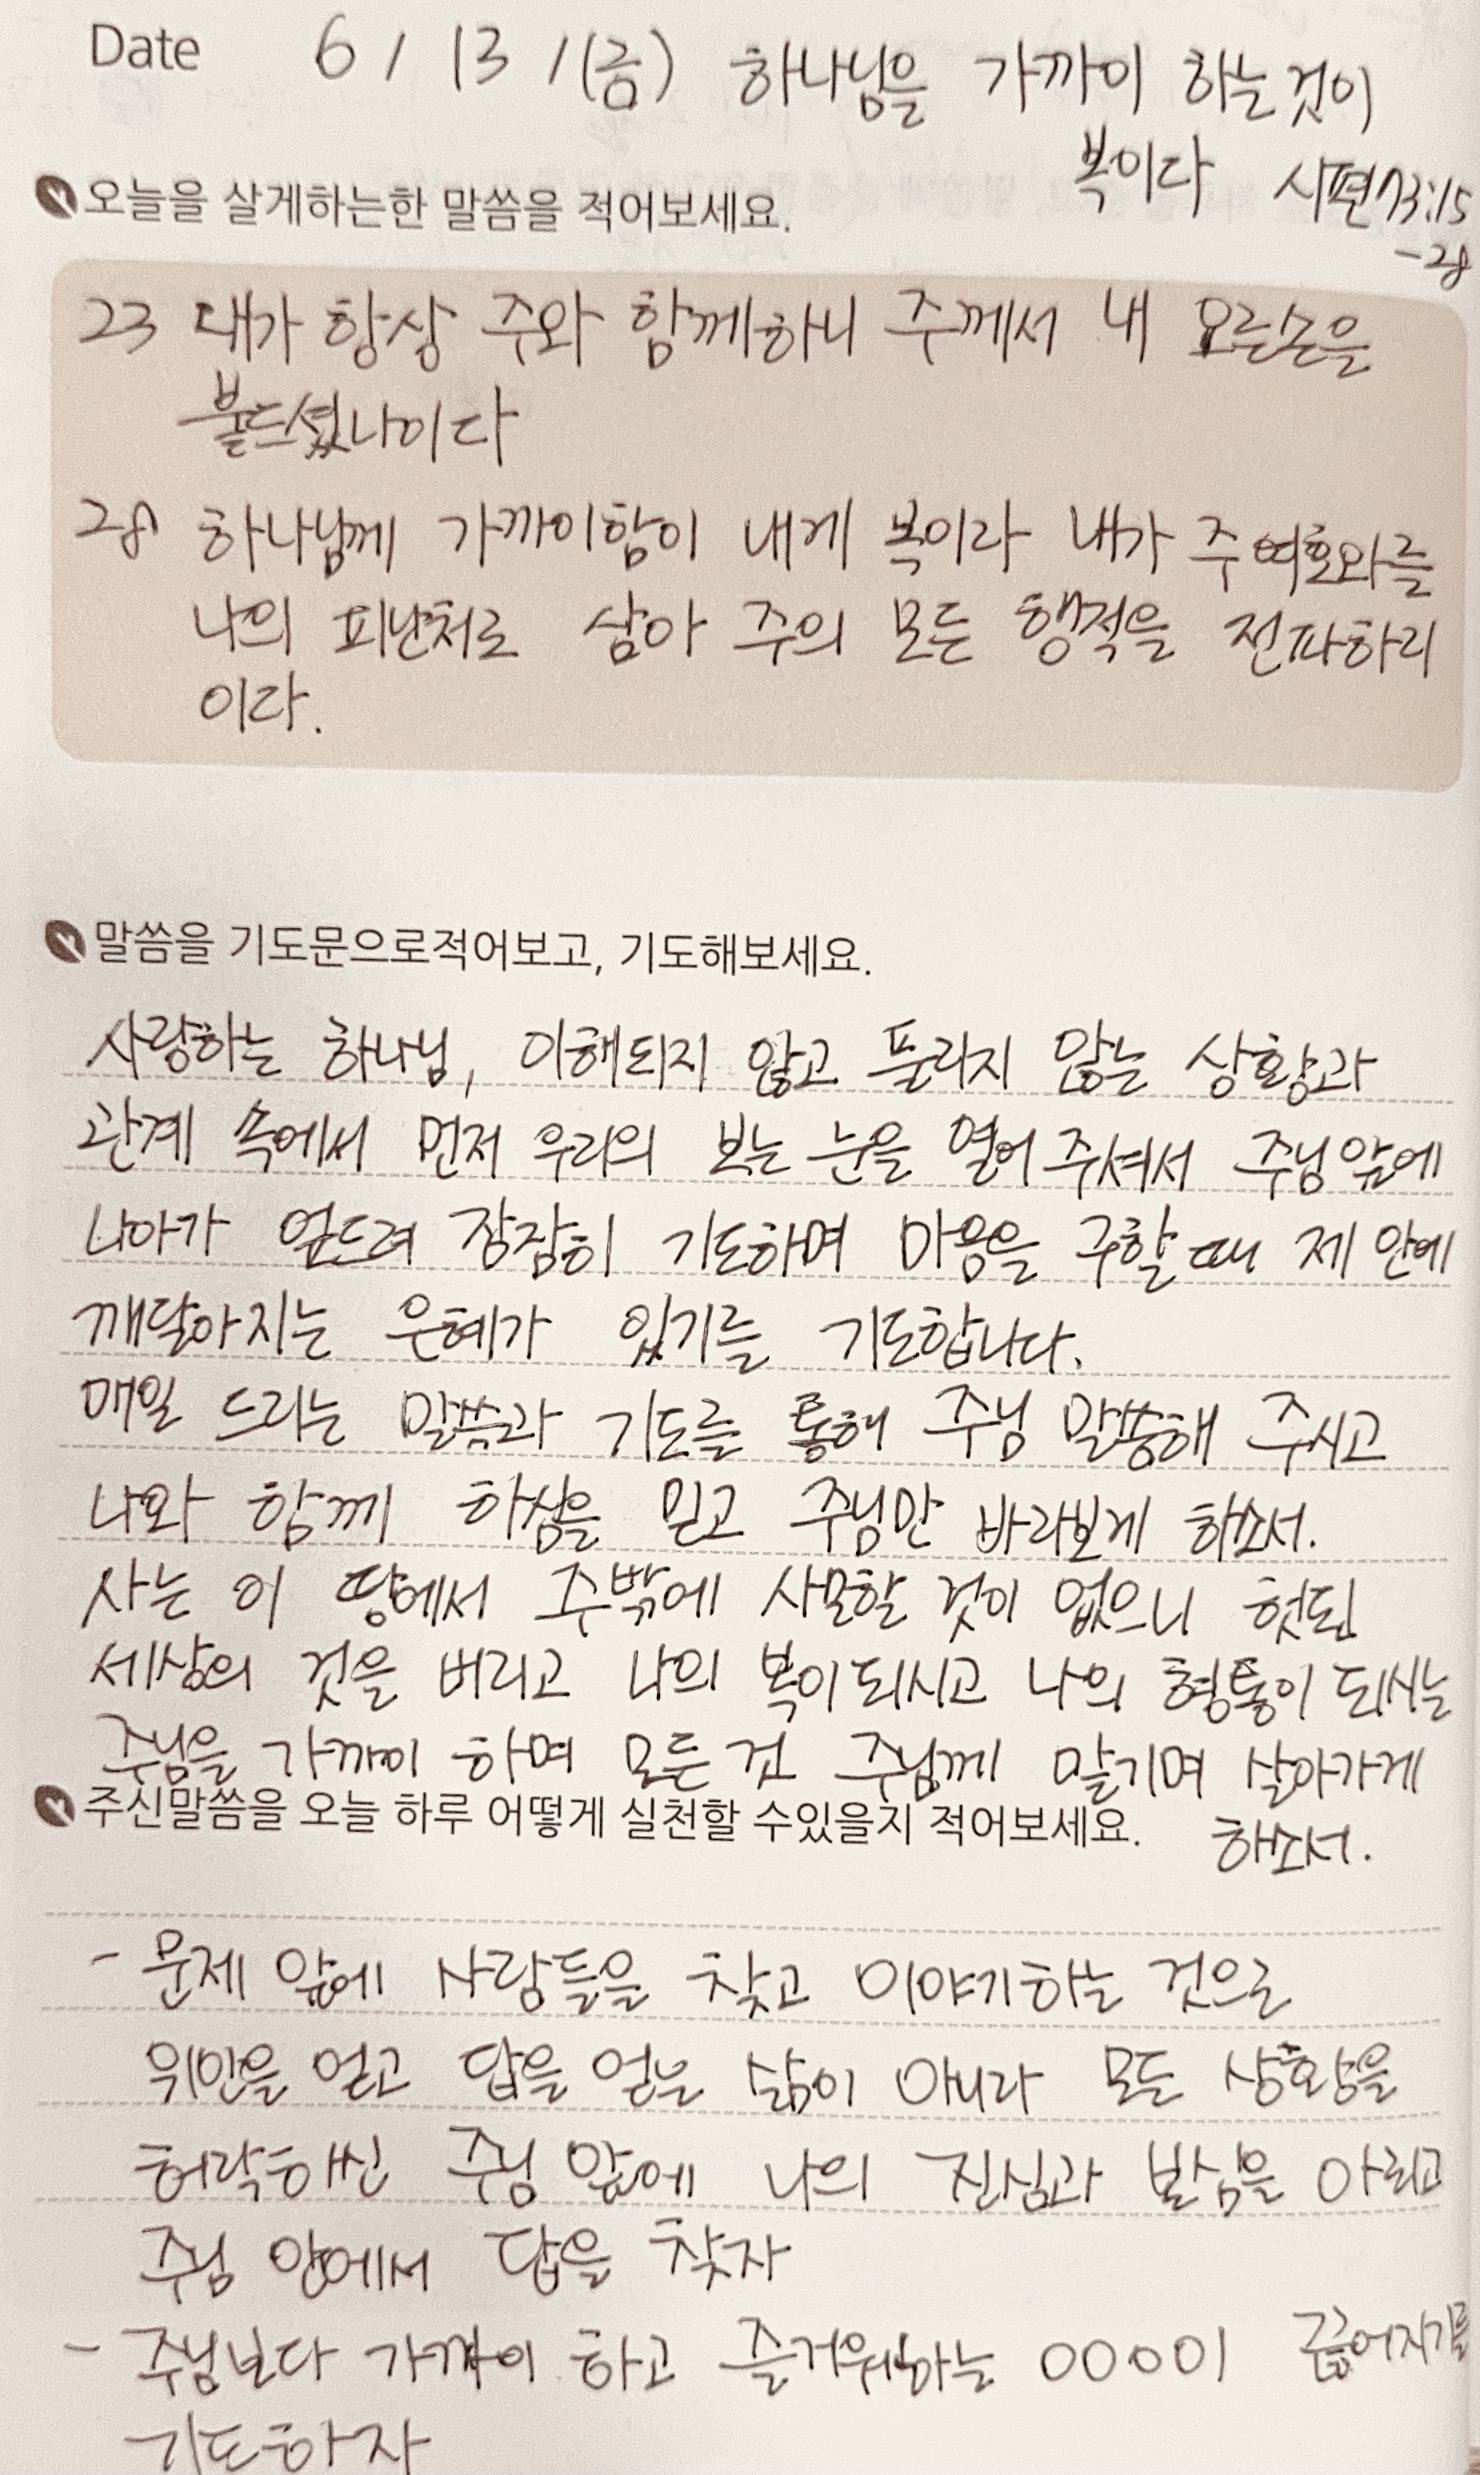 Date 6 / 13 / (금) 하나님을 가까이 하는것이
복이다 시편73:15
-28
오늘을 살게하는한 말씀을 적어보세요.
23 내가 항상 주와 함께하니 주께서 내 오른손을
붙드셨나이다
28 하나님께 가까이함이 내게 복이라 내가 주 여호와를
나의 피난처로 삼아 주의 모든 행적을 전파하리
이다.
말씀을 기도문으로적어보고, 기도해보세요.
사랑하는 하나님, 이해되지 않고 풀리지 않는 상황과
관계 속에서 먼저 우리의 보는 눈을 열어 주셔서 주님앞에
나아가 엎드려 잠잠히 기도하며 마음을 구할때 제 안에
깨달아지는 은혜가 있기를 기도합니다.
매일 드리는 말씀과 기도를 통해 주님 말씀해 주시고
나와 함께 하심을 믿고 주님만 바라보게 하소서.
사는 이 땅에서 주밖에 사모할 것이 없으니 헛된
세상의 것을 버리고 나의 복이되시고 나의 형통이 되시는
주님을 가까이 하며 모든것 주님께 맡기며 살아가게
하소서.
주신말씀을 오늘 하루 어떻게 실천할 수있을지 적어보세요.
- 문제 앞에 사람들을 찾고 이야기하는 것으로
위안을 얻고 답을 얻는 삶이 아니라 모든 상황을
허락하신 주님 앞에 나의 진심과 발심을 아뢰고
주님 앞에서 답을 찾자
- 주님보다 가까이 하고 즐거워하는 OOO이 끊어지기를
기도하자